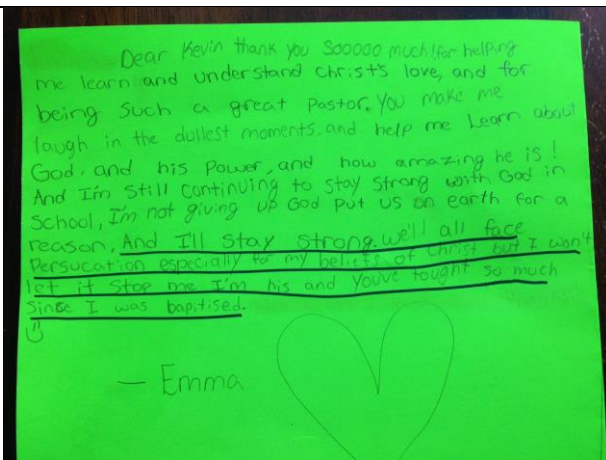 Dear Kevin thank you Sooooo much! for helping
me learn and understand Christ's love, and for
being such a great Pastor. You make me
laugh in the dullest moments. and help me Learn about
God, and his Power, and how amazing he is!
And I'm Still Continuing to stay Strong with God in
School, I'm not giving up God put us on earth for a
reason, And I'll Stay Strong. we'll all face
Persucation especially for my beliefs of Christ but I won't
let it stop me I'm his and Youve tought so much
Since I was bapitised.
— Emma